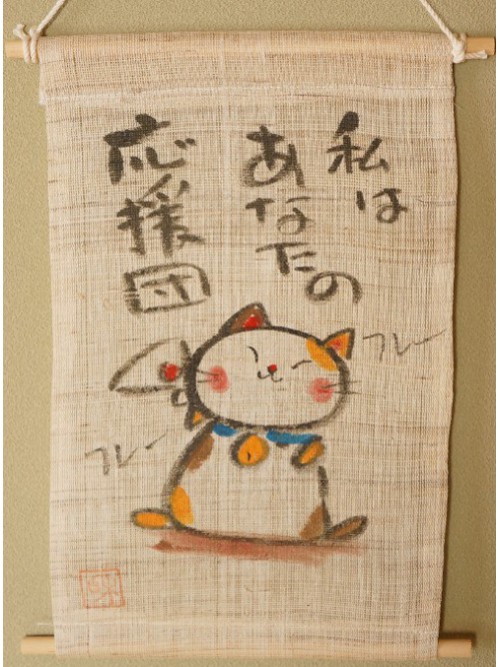 私は
あなたの
応援団
フレー
フレー